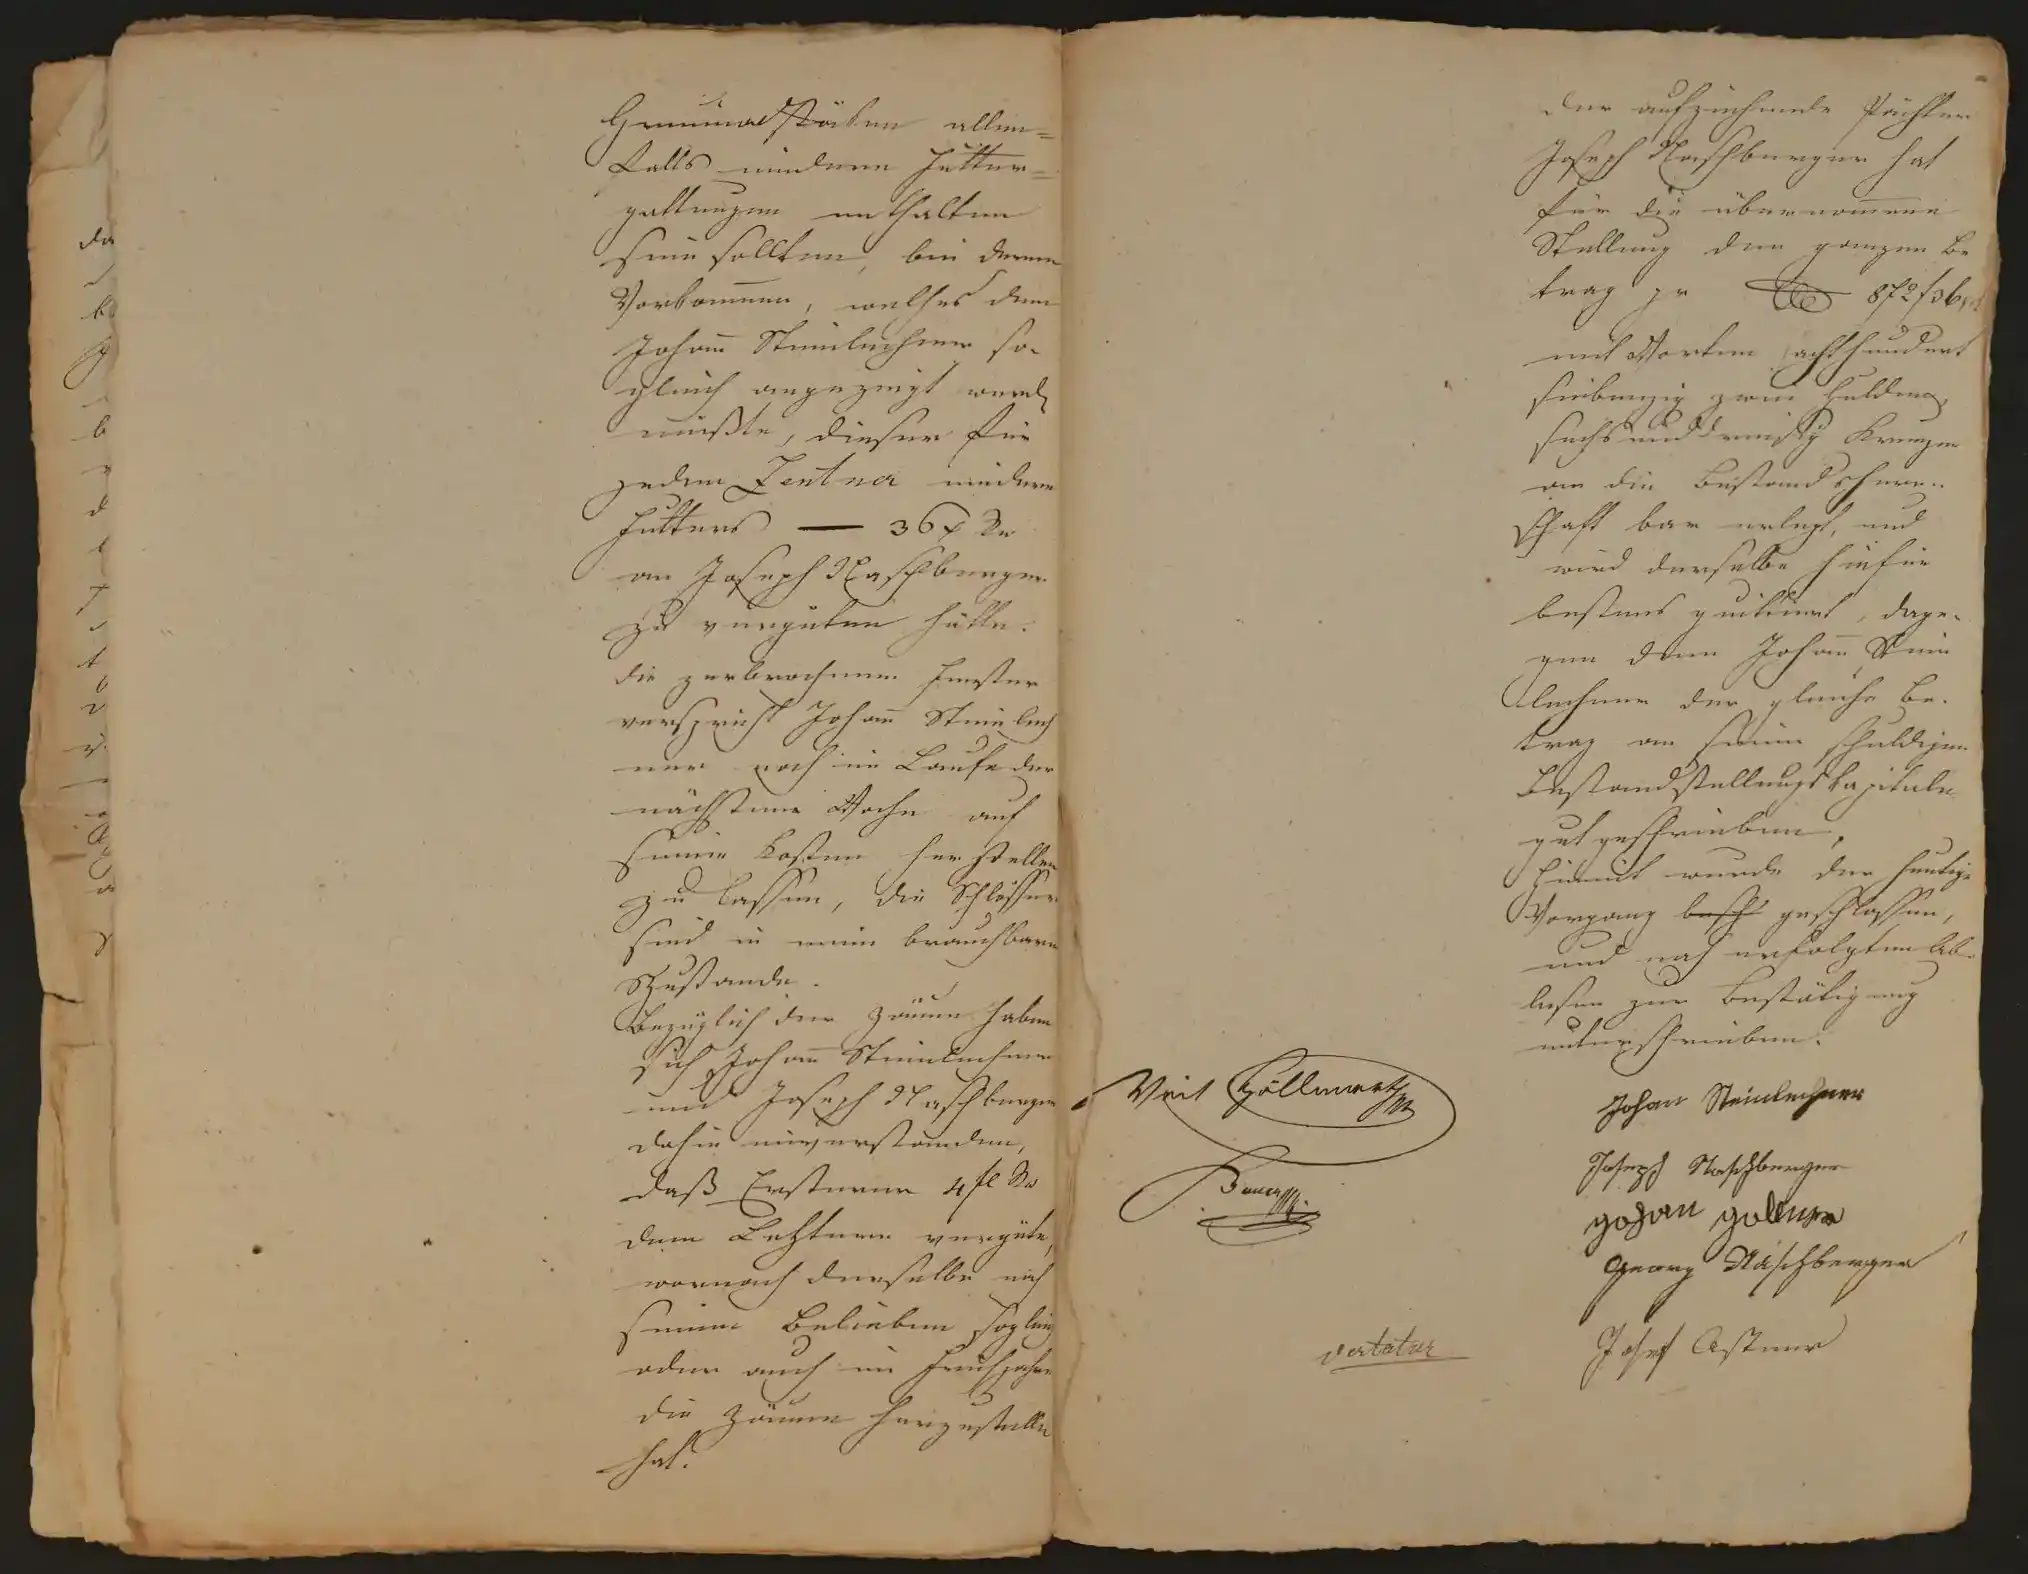 allen=
falls mindere Futter=
gattungen enthalten
sein sollten, bei deren
Vorkommen, welches dem
Johann Steinlechner so-
gleich angezeigt werd
müßte, dieser für
jeden Zentner mindern
Futters — 36 x Rw
an Joseph Naschberger
zu vergüten hätte.
die zerbrochenen Fenster
verspricht Johann Steinlech
ner noch im Laufe der
nächsten Woche auf
seine Kosten herstellen
zu lassen, die Schlösser
sind in einem brauchbaren
Zustande.
Bezüglich der Zäune haben
sich Johann Steinlechner
und Joseph Naschberger
dahin einverstanden,
daß Ersterer 4 fl Rw
dem Letztern vergüte,
wornach derselbe nach
seinem Belieben sogleich
oder auch im Frühjahre
die Zäune herzustellen
hat.
der aufziehende Pächter
Joseph Naschberger hat
für die übernommene
Stellung den ganzen Be
trag pr 872 f 36 x
mit Worten achthundert
siebenzig zwei Gulden,
sechs und dreißig Kreuzer
an die Bestandsherr-
schaft bar erlegt, und
wird derselbe hiefür
bestens quittirt, dage-
gen dem Johann Stein
lechner der gleiche Be-
trag an seinem schuldigen
Bestandstellungskapitale
gut geschrieben.
Hiemit wurde der heutige
Vorgang besch geschlossen,
und nach erfolgtem Ab-
lesen zur Bestätigung
unterschrieben.
Johan Steinlechner
Veit Höllwarth
Joseph Naschberger
Georg Naschberger
Josef Astner
vertatur